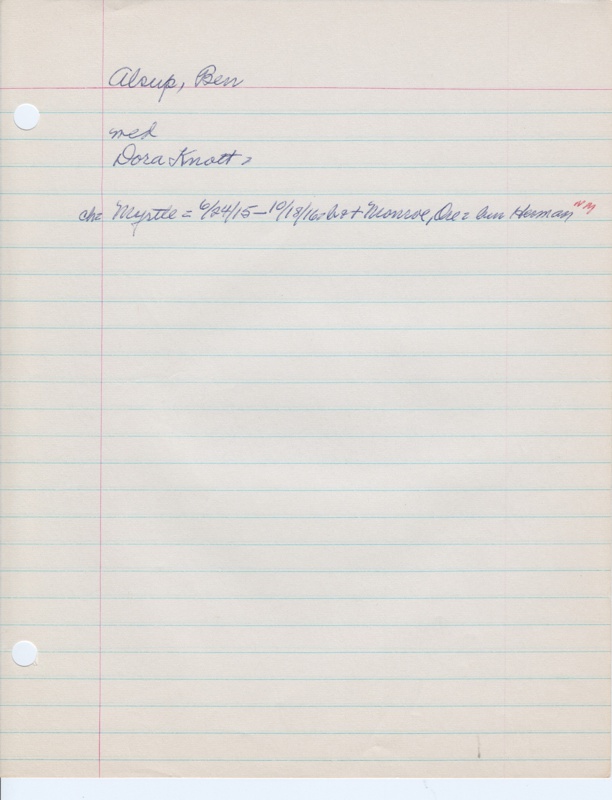 Alsup, Ben
med
Dora Knott =
ch= Myrtle = 6/24/15 – 10/18/16 = b & + Monroe, Ore = bur Herman "NM